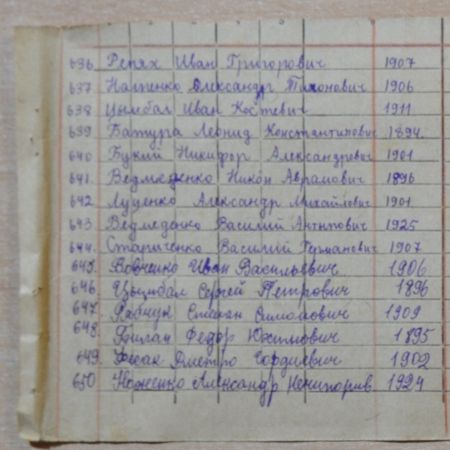 636 Репях Иван Григорович 1907
637 Нагненко Олександр Тихонович 1906
638 Цымбал Иван Костевич 1911
639 Батура Леонид Константинович 1894.
640 Букий Никифор Александрович 1901
641. Ведмеденко Никон Аврамович 1896
642 Луценко Александр Михайлович 1901
643. Ведмеденко Василий Антипович 1925
644. Стариченко Василий Германович 1907
645. Вовченко Иван Васильевич 1906
646. Цымбал Сергей Петрович 1896
647 Рябчук Степан Симонович 1909
648. Билан Федор Юстимович 1895
649. Дметро Гордиевич 1902
650 Ноженко Александр Ничипорив. 1924